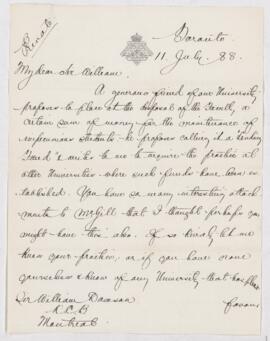 Private
Toronto
11 July. 88.
My dear Sir William.
A generous friend of our University
proposes to place at the disposal of the Faculty, a
certain sum of money for the maintenance of
impecunious students - he proposes calling it a Lending
Fund & asks to me to require the practice at
other Universities where such funds have been es-
tablished. You have so many interesting attach-
ments to McGill that I thought perhaps you
might have this also. If so kindly let me
know your practice, or if you have none
yourselves & know of any University that has please
Sir William Dawson favour
K C B
Montreal